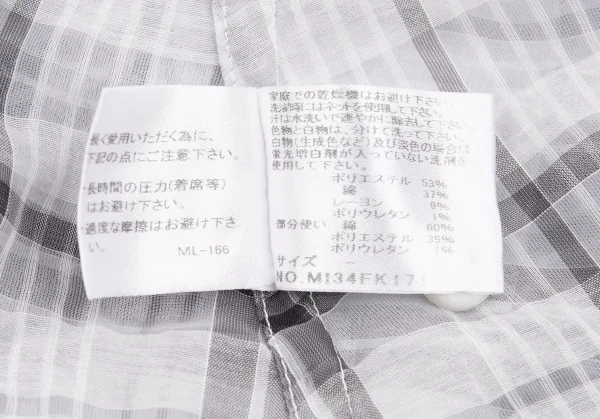 長く愛用いただく為に、
下記の点にご注意下さい。
・長時間の圧力(着席等)
はお避け下さい。
・過度な摩擦はお避け下さ
い。
ML-166
家庭での乾燥機はお避け下さい。
洗濯時にはネットを使用して下さい。
汗は水洗いで速やかに除去して下さい。
色物と白物は、分けて洗って下さい。
白物(生成色など)及び淡色の場合は
蛍光増白剤が入っていない洗剤を
使用して下さい。
ポリエステル 53%
綿 37%
レーヨン 9%
ポリウレタン 1%
部分使い 綿 60%
ポリエステル 39%
ポリウレタン 1%
サイズ －
NO.MI34FK171